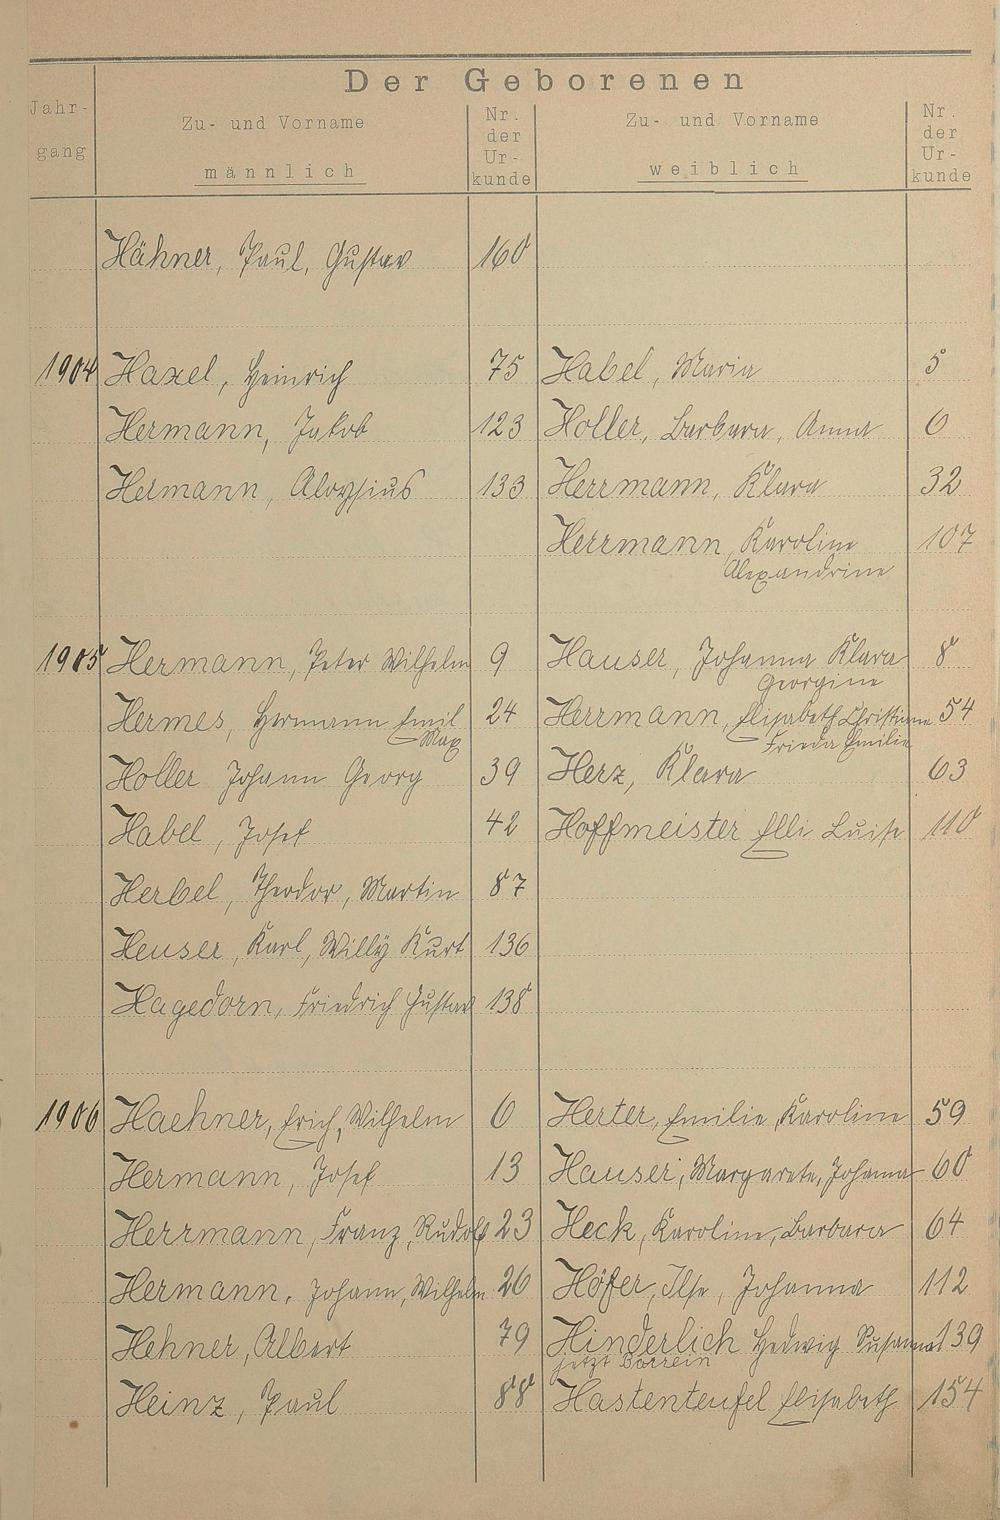 Der Geborenen
Jahr-
gang
Zu- und Vorname
männlich
Nr.
der
Ur-
kunde
Zu- und Vorname
weiblich
Nr.
der
Ur-
kunde
Hähner, Paul, Gustav 160
1904 Haxel, Heinrich 75 Habel, Maria 5
Hermann, Jakob 123 Holler, Barbara, Anna 6
Hermann, Aloysius 133 Herrmann, Klara 32
Herrmann, Karoline 107
Alexandrine
1905 Hermann, Peter Wilhelm 9 Hauser, Johanna Klara 8
Georgine
Hermes, Hermann Emil 24 Herrmann, Elisabeth Christiane 54
Max Frieda Emilie
Holler Johann Georg 39 Herz, Klara 63
Habel, Josef 42 Hoffmeister Elli Luise 110
Herbel, Theodor, Martin 87
Heuser, Karl, Willy Kurt 136
Hagedorn, Friedrich Gustav 138
1906 Haehner, Erich, Wilhelm 6 Herter, Emilie, Karoline 59
Hermann, Josef 13 Hauser, Margarete, Johanna 60
Herrmann, Franz, Rudolf 23 Heck, Karoline, Barbara 64
Hermann, Johann, Wilhelm 26 Höfer, Ilse, Johanna 112
Hehner, Albert 79 Hinderlich Hedwig Susanna 139
jetzt Borrein
Heinz, Paul 88 Hastenteufel Elisabeth 154